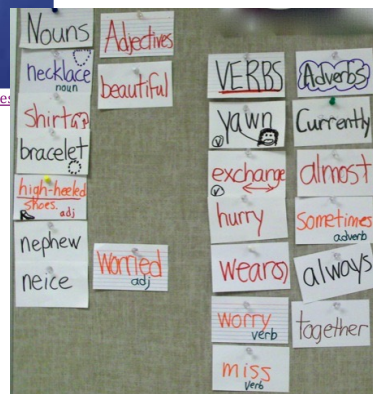 es
Nouns
necklace
noun
shirt
bracelet
high-heeled
shoes.
adj
nephew
neice
Adjectives
beautiful
worried
adj
VERBS
yawn
v
exchange
v
hurry
wears
worry
verb
miss
verb
Adverbs
Currently
almost
sometimes
adverb
always
together